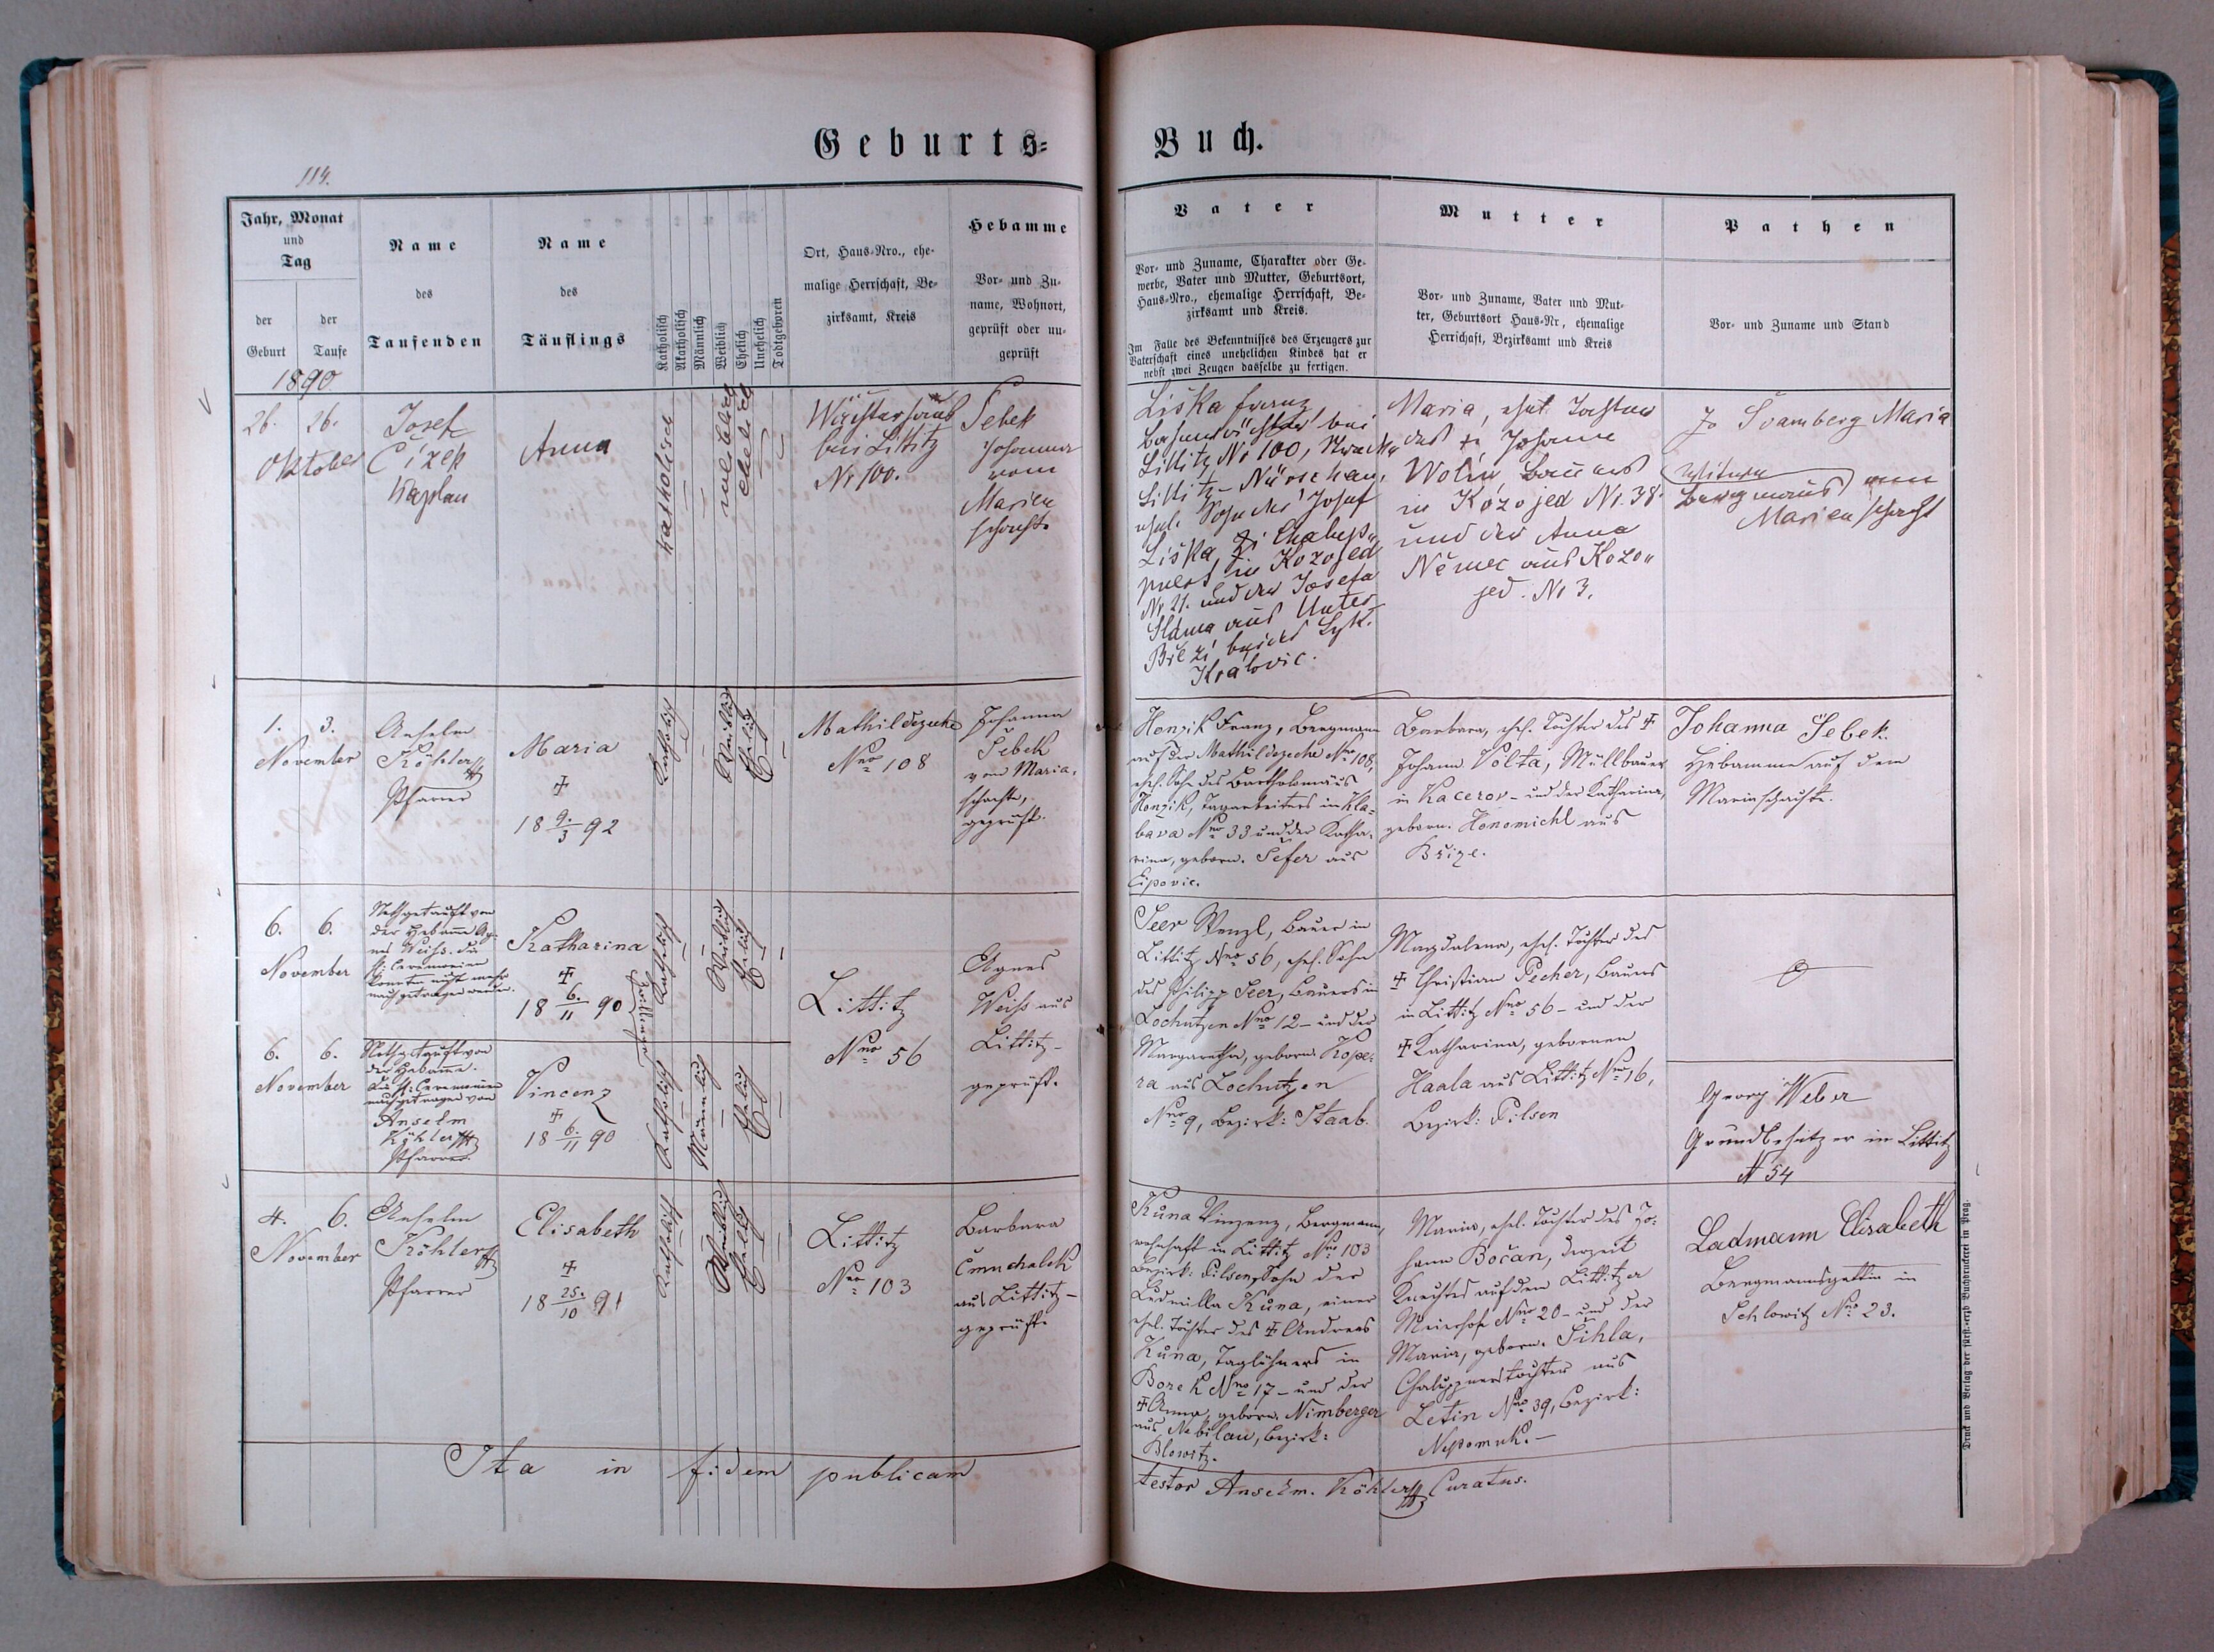 Geburts=
Buch.
114.
Jahr, Monat
und
Tag
der
Geburt
der
Taufe
1890
Name
des
Taufenden
Name
des
Täuflings
Katholisch
Akatholisch
Männlich
Weiblich
Ehelich
Unehelich
Todtgeboren
Ort, Haus-Nro., ehe-
malige Herrschaft, Be-
zirksamt, Kreis
Hebamme
Vor- und Zu-
name, Wohnort,
geprüft oder un-
geprüft
Vater
Vor- und Zuname, Charakter oder Ge-
werbe, Vater und Mutter, Geburtsort,
Haus-Nro., ehemalige Herrschaft, Be-
zirksamt und Kreis.
Im Falle des Bekenntnisses des Erzeugers zur
Vaterschaft eines unehelichen Kindes hat er
nebst zwei Zeugen dasselbe zu fertigen.
Mutter
Vor- und Zuname, Vater und Mut-
ter, Geburtsort Haus-Nr, ehemalige
Herrschaft, Bezirksamt und Kreis
Pathen
Vor- und Zuname und Stand
26. 26.
Oktober
Josef
Čížek
Kaplan
Anna
katholisch
weiblich
ehelich
Wächterhaus
bei Littitz
Nr 100.
Šebek
Johanna
vom
Marien
schacht
Liška Franz
Bahnwächter bei
Littitz Nr 100, Strecke
Littitz - Nürschan,
ehel. Sohn des Josef
Liška,
in Kozojed
Nr 21. und der Josefa
Sláma aus Unter
Březí, beides Bzk.
Kralovic.
Maria, ehel. Tochter
des Johann
Wolín, Bauers
in Kozojed Nr. 38.
und der Anna
Němec aus Kozo„
jed. Nr 3.
Švamberg Maria
Bergmanns
Marienschacht
1. 3.
November
Anselm
Köhler
Pfarrer
Maria
✝
18 9./3 92
Katholisch
Weiblich
Ehelich
Mathildezeche
Nro 108
Johanna
Šebek
vom Maria-
schachte,
geprüft.
Honzik Franz, Bergmann
auf der Mathildezeche Nro 108,
ehel. Sohn des Bartholomäus
Honzik, Tagarbeiters in Kla-
bava Nro 33 und der Katha-
rina, geborn. Sefer aus
Lipovic.
Barbara, ehel. Tochter des ✝
Johann Volta, Müllbauer
in Kacerov - und der Katharina,
geborn. Honomichl aus
Bříze.
Johanna Šebek
Hebamme auf dem
Mariaschachte.
6. 6.
November
Nothgetauft von
der Hebamme Ag-
nes Weiß. Die
hl. Ceremonien
konnten nicht mehr
nachgetragen werden.
Katharina
✝
18 6./11 90
Zwillinge
Katholisch
Weiblich
Ehelich
Littitz
Nro 56
Agnes
Weiß aus
Littitz -
geprüft.
Seer Wenzl, Bauer in
Littitz Nro 56, ehel. Sohn
des Philipp Seer, Bauers in
Lochutzen Nro 12 - und der
Margaretha, geborn. Kope-
ra aus Lochutzen
Nro 9, Bezirk: Staab.
Magdalena, ehel. Tochter des
✝ Christian Pecher, Bauers
in Littitz Nro 56 - und der
✝ Katharina, gebornen
Haala aus Littitz Nro 16,
Bezirk: Pilsen
6. 6.
November
Nothgetauft von
der Hebamme.
Die hl. Ceremonien
nachgetragen von
Anselm
Köhler
Pfarrer.
Vincenz
✝
18 6./11 90
Katholisch
Männlich
Ehelich
Georg Weber
Grundbesitzer in Littitz
N 54
4. 6.
November
Anselm
Köhler
Pfarrer
Elisabeth
✝
18 25./10 91
Katholisch
Weiblich
Ehelich
Littitz
Nro 103
Barbara
Čmuchalek
aus Littitz -
geprüft.
Kůna Vinzenz, Bergmann,
wohnhaft in Littitz Nro 103
Bezirk: Pilsen, Sohn der
Ludmilla Kůna, einer
ehel. Tochter des ✝ Andreas
Kůna, Taglöhners in
Borek Nro 17 - und der
✝ Anna, geborn. Nimberger
aus Nebilau, Bezirk:
Blowitz.
Maria, ehel. Tochter des Jo-
hann Bočan, derzeit
Knechtes auf dem Littitzer
Meierhofe Nro 20 - und der
Maria, geborn. Šihla,
Chaluppnerstochter aus
Letin Nro 39, Bezirk:
Nepomuk. -
Ladmann Elisabeth
Bergmannsgattin in
Schlowitz Nro 23.
Ita in fidem publicam
testor Anselm. Köhler Curatus.
Druck und Verlag der fürst-erzb Buchdruckerei in Prag.